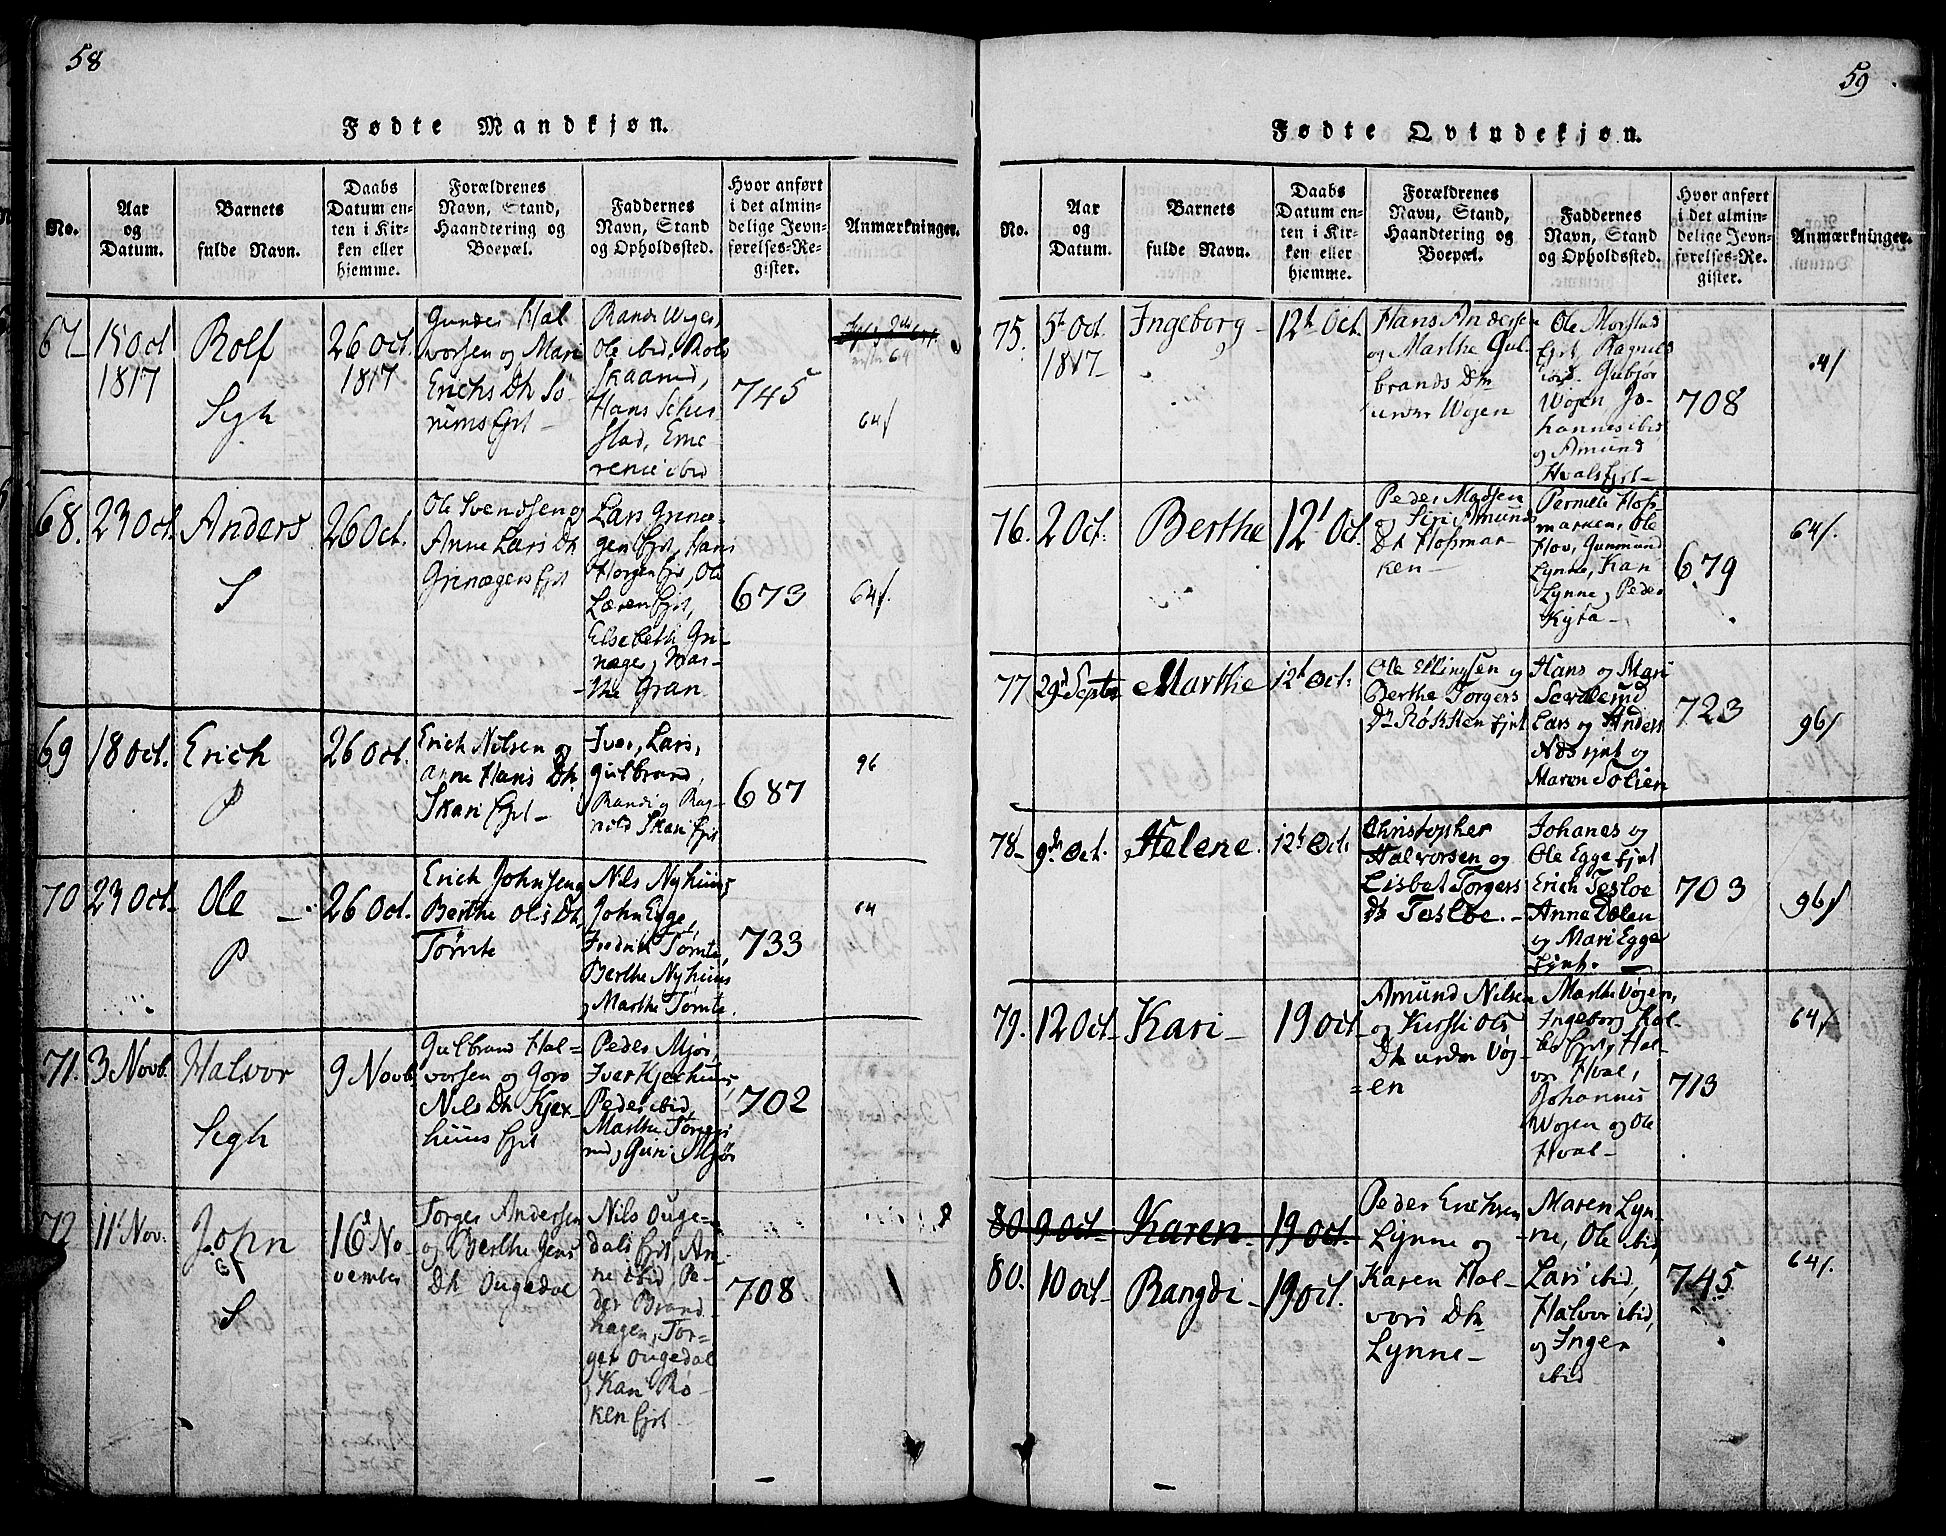 58
Fødte Mandkjøn.
No.
Aar
og
Datum.
Barnets
fulde Navn.
Daabs
Datum en-
ten i Kir-
ken eller
hjemme.
Forældrenes
Navn, Stand,
Haandtering og
Boepæl.
Faddernes
Navn, Stand
og Opholdssted.
Hvor anført
i det almin-
delige Jevn-
førelses-Re-
gister.
Anmærkninger.
67
15 Oct
1817
Rolf
Segh
26 Oct.
1817
Gunder Hal
vorsen og Mari
Erichs Dtr Sö-
rums Ejet
Ole ibid, Rolv
Skaarud,
Hans Schee
stad, Eme
rencie ibid
745
64
64/
68.
23 Oct.
Anders
S
26 Oct.
Ole Svendsen og
Anne Lars Dtr
Grinagers Ejet
Lars Grina-
gen Ejet, Hans
Horgen Ejet, Ole
Læren Ejet,
Elsebeth Gri-
nager, Mar-
the Gran
673
64/.
69
18 Oct.
Erich
P
26 Oct.
Erich Nilsen og
Anne Hans Dtr
Skari Ejet
Iver, Lars,
Gulbrand,
Randi og Rag-
nild Skari Ejet
687
96
70
23 Oct.
Ole
P
26 Oct.
Erich Johnsen og
Berthe Ols Dtr
Tömte
Nils Nyhuus
John Egge,
Fredrik Tømte,
Berthe Nyhuus
og Marthe Tömte.
733
64
71.
3 Novb.
Halvor
Segh
9 Novb.
Gulbrand Hal-
vorsen og Goro
Nils Dtr Kjex-
huus Ejet
Peder Mjör,
Iver Kjexhuus,
Peder ibid,
Marthe Torger
rud, Guri Mjör
702
72
11t Nov.
John
S
16d No-
vember
Torger Andersen
og Berthe Jens
Dtr Ougedal
Nils Ouge-
dals Ejet, An-
ne ibid, Pe-
der Brand
hagen, Tor-
ger Ougedal
og Kari Rö-
ken Ejet
708
59
Fødte Qvindekjøn.
No.
Aar
og
Datum.
Barnets
fulde Navn.
Daabs
Datum en-
ten i Kir-
ken eller
hjemme.
Forældrenes
Navn, Stand,
Haandtering og
Boepæl.
Faddernes
Navn, Stand
og Opholdssted.
Hvor anført
i det almin-
delige Jevn-
førelses-Re-
gister.
Anmærkninger.
75.
5t Oct.
1817
Ingeborg
12t Oct.
Hans Andersen
og Marthe Gul-
brands Dtr
under Wøjen
Ole Morstad
Ejet, Ragnild
ibid. Gubjør
Wøjen, Jo-
hannes ibid
og Amund
Hvals Ejet
708
76.
2 Oct.
Berthe
12t Oct.
Peder Madsen
og Siri Amunds
Dtr Hofsmar-
ken
Pernille Hofs-
marken, Ole
Hov, Gunmund
Lynne, Kari
Lynne, Peder
Kyta
679
64/.
77
29d Septr
Marthe
12t Oct.
Ole Ellingsen og
Berthe Torgers
Dtr Røkken Ejet
Hans og Mari
Lars og Anders
Næs Ejet og
Maren Solien
723
96/
78
9de Oct.
Helene
12t Oct.
Christopher
Halvorsen og
Lisbet Torgers
Dtr Tesløe.
Johanes og
Ole Egge Ejet
Erich Tesløe
Anne Dølen
og Mari Egge
Ejet.
703
96/
79.
12 Oct.
Kari
19 Oct.
Amund Nilsen
og Kirsti Ols
Dtr under Vøj-
en
Marthe Vøjen,
Ingeborg Kal-
bs Ejet, Hal-
vor Hval,
Johannes
Wøjen og Ole
Hval
713
64/
80.
9 Oct.
Karen
19 Oct.
80.
10 Oct.
Rangdi
19 Oct.
Peder Erichsen
Lynne og
Karen Hal-
vors Dtr
Lynne
Maren Lyn-
ne, Ole ibid,
Lars ibid,
Halvor ibid,
og Inger
ibid
745
64/.